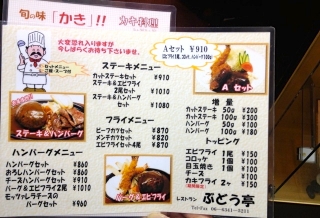 旬の味「かき」!! カキ料理
大変恐れ入りますが
今しばらくお待ち下さいませ。
セットメニュー
ご飯・スープ付
Aセット ¥910
Aセット
ステーキメニュー
カットステーキセット ¥910
ステーキ&エビフライ
2尾セット ¥1010
ステーキ&ハンバーグ
セット ¥1080
ステーキ&ハンバーグ
フライメニュー
ビーフカツセット ¥870
メンチカツセット ¥820
エビフライセット4本 ¥870
ハンバーグメニュー
ハンバーグセット ¥860
おろしハンバーグセット ¥910
チーズハンバーグセット ¥910
バーグ&エビフライ2尾 ¥1010
モッツァレラチーズの
ハンバーグセット ¥960
バーグ&エビフライ
増量
カットステーキ 50g ¥200
カットステーキ 100g ¥300
ハンバーグ 50g ¥100
ハンバーグ 100g ¥180
トッピング
エビフライ 1尾 ¥150
コロッケ 1個 ¥100
目玉焼き 1個 ¥100
チーズ ¥100
カキフライ 2ヶ ¥150
レストラン ぶどう亭
TEL・FAX 06-6341-3231